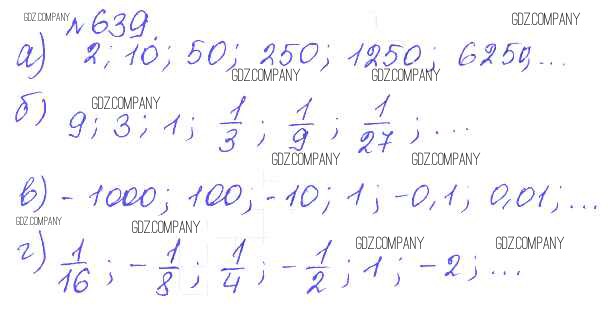 GDZ.COMPANY № 639. GDZ.COMPANY
а) 2; 10; 50; 250; 1250; 6250; ...
GDZ.COMPANY GDZ.COMPANY
GDZ.COMPANY
б) 9; 3; 1; 1/3; 1/9; 1/27; ...
GDZ.COMPANY GDZ.COMPANY
в) -1000; 100; -10; 1; -0,1; 0,01; ...
GDZ.COMPANY GDZ.COMPANY
GDZ.COMPANY GDZ.COMPANY
г) 1/16; -1/8; 1/4; -1/2; 1; -2; ...